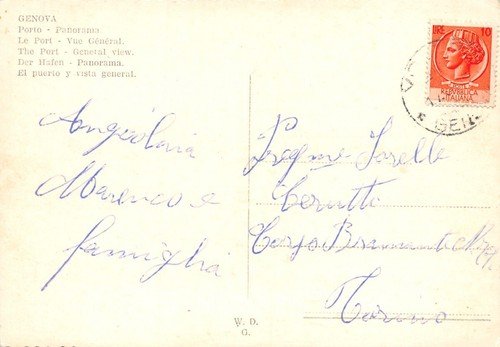 GENOVA
Porto - Panorama
Le Port - Vue Général.
The Port - General view.
Der Hafen - Panorama.
El puerto y vista general.
LIRE 10
REPUBBLICA
ITALIANA
Marenco e
famiglia
Sorelle
Cerutti
Corso Bramante
Torino
W. D.
G.